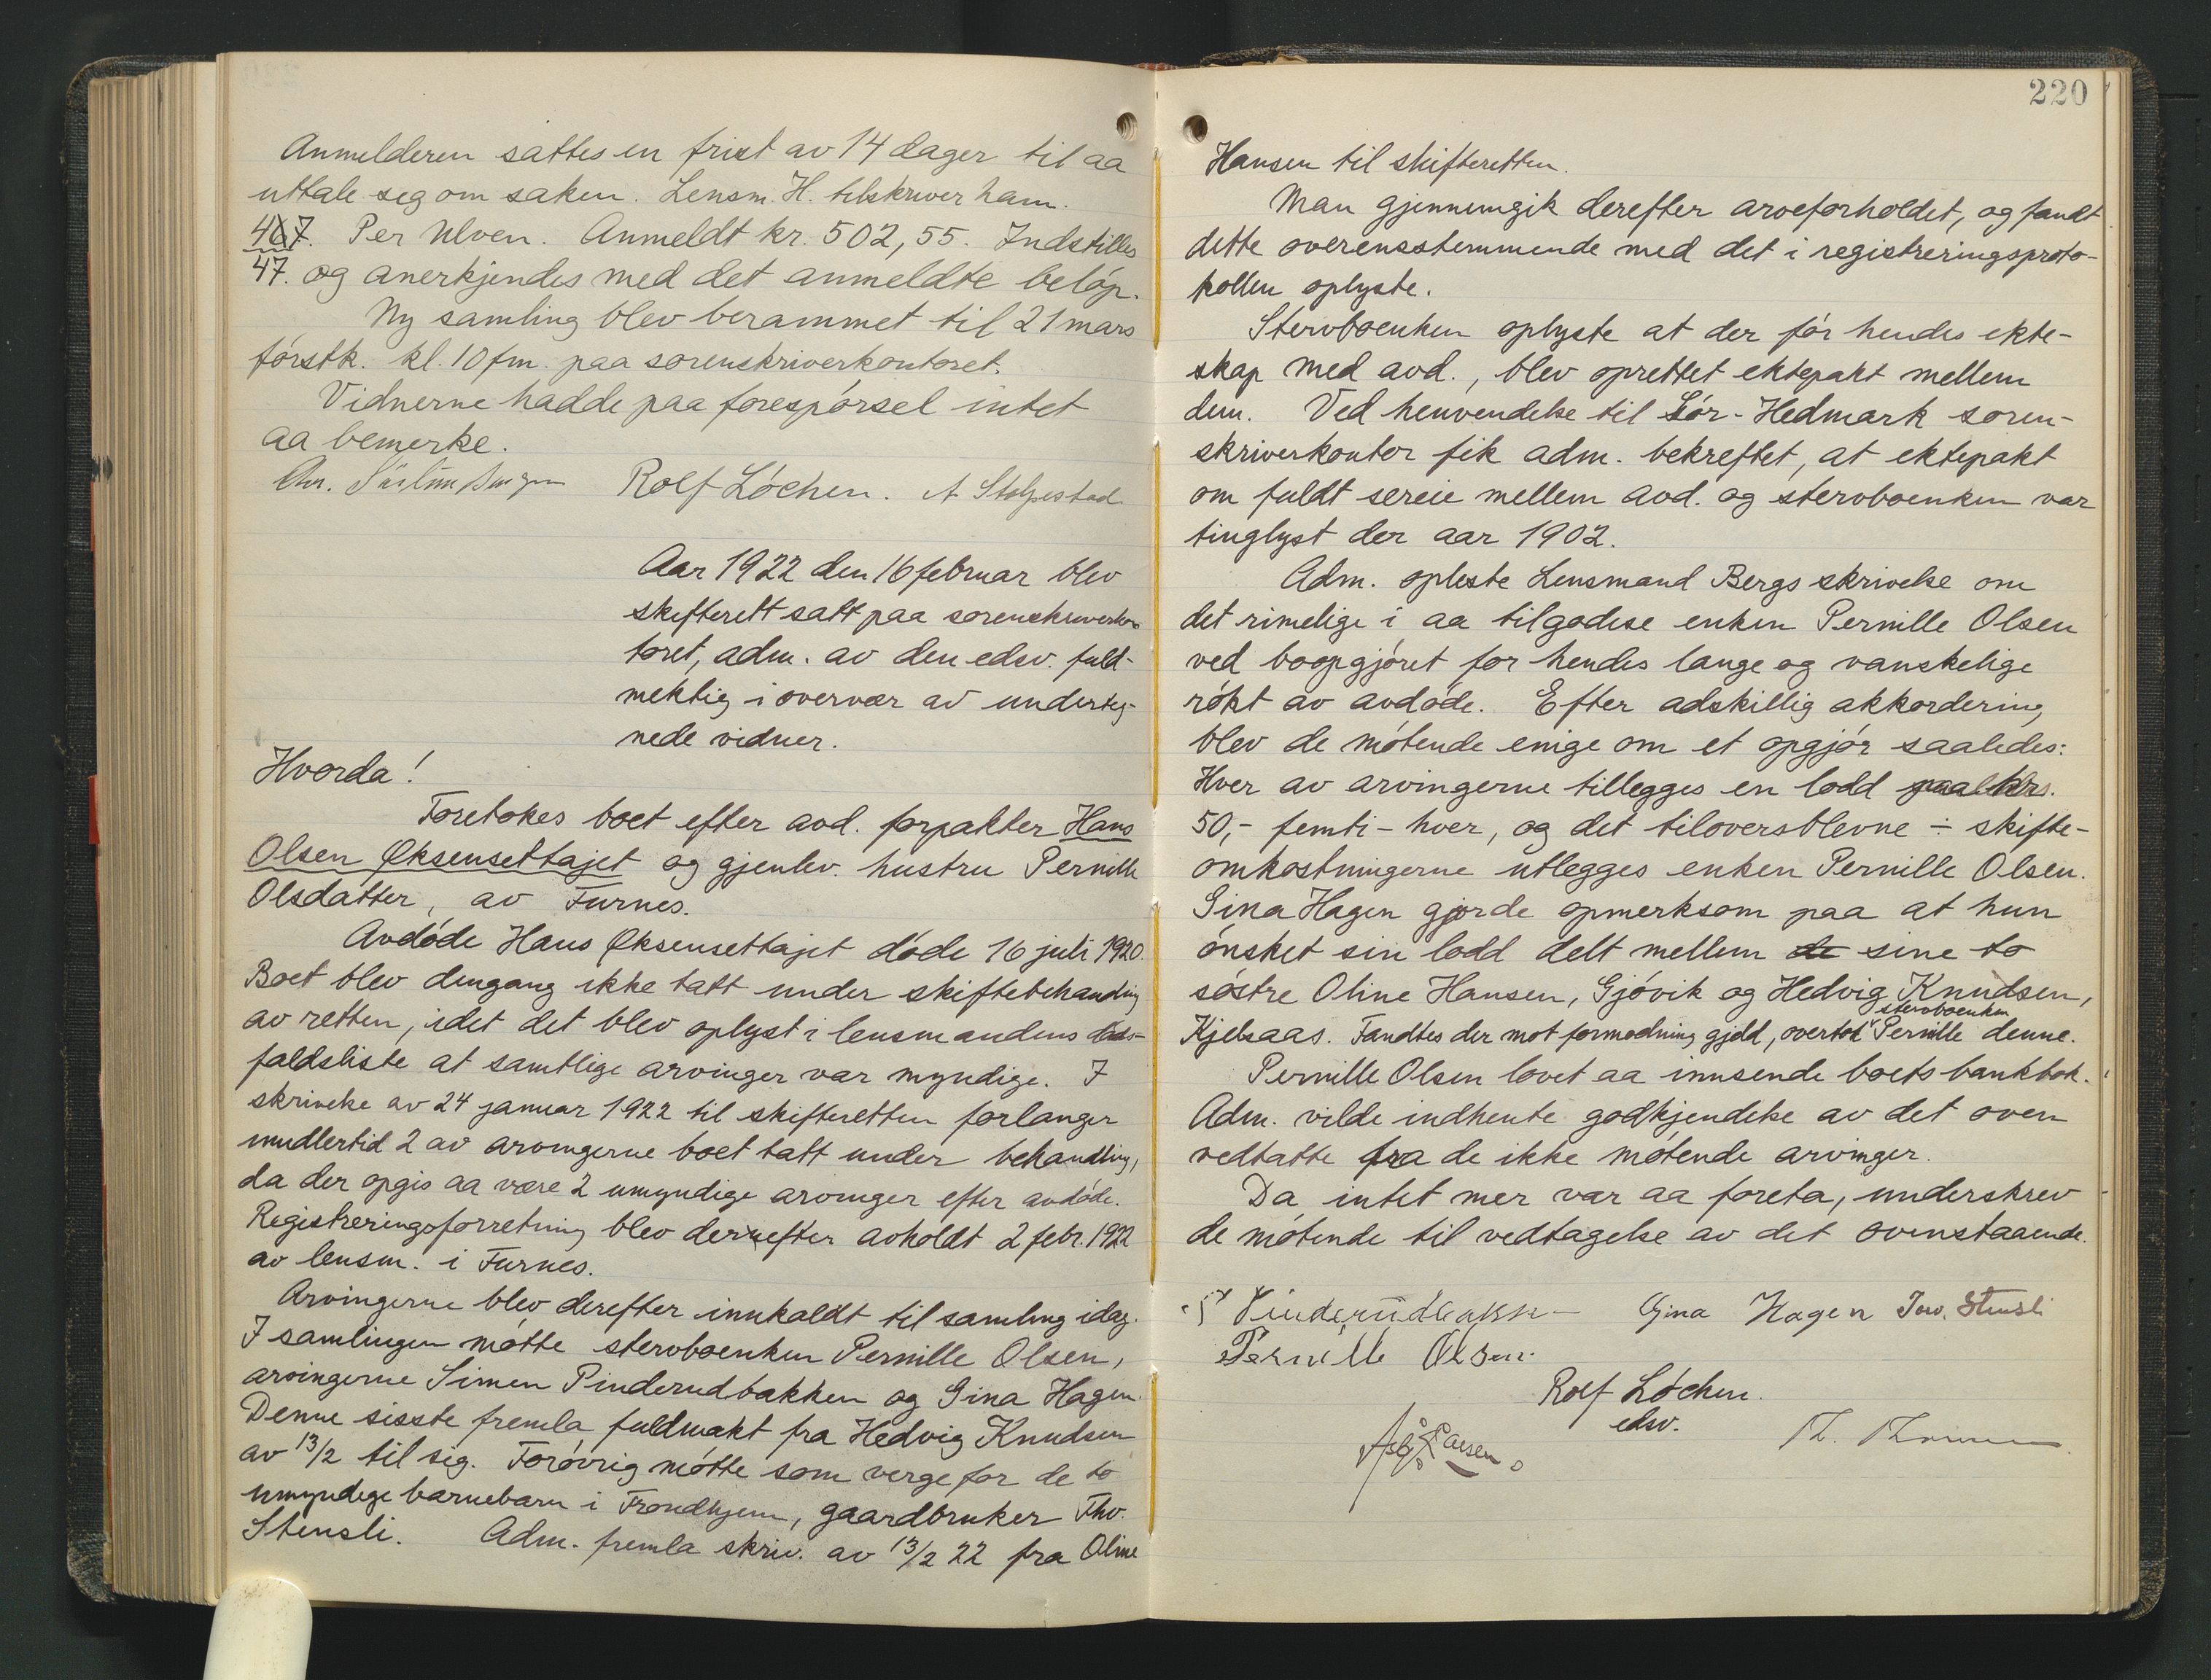 Anmelderen sattes en frist av 14 dager til aa
uttale seg om saken. Lensm. H. tilskriver ham.
407. Per Ulven. Anmeldt kr. 502,55. Indstilles
47. og anerkjendes med det anmeldte beløp.
Ny samling blev berammet til 21 mars
førstk. kl. 10 fm. paa sorenskriverkontoret.
Vidnerne hadde paa forespørsel intet
aa bemerke.
Rolf Løchen. A Stolpestad
Aar 1922 den 16 februar blev
skifterett satt paa sorenskriverkon
toret, adm. av den edsv. fuld-
mektig i overvær av underteg-
nede vidner.
Hvorda!
Foretokes boet efter avd. forpakter Hans
Olsen Øksensettajet og gjenlev. hustru Pernille
Olsdatter, av Furnes.
Avdøde Hans Øksensettajet døde 16 juli 1920.
Boet blev dengang ikke tatt under skiftebehandling
av retten, idet det blev oplyst i lensmandens døds-
faldsliste at samtlige arvinger var myndige. I
skrivelse av 24 januar 1922 til skifteretten forlanger
imidlertid 2 av arvingerne boet tatt under behandling,
da der opgis aa være 2 umyndige arvinger efter avdøde.
Registreringsforretning blev derefter avholdt 2 febr. 1922
av lensm. i Furnes.
Arvingerne blev derefter innkaldt til samling idag.
I samlingen møtte stervboenken Pernille Olsen,
arvingerne Simen Pinderudbakken og Gina Hagen.
Denne sisste fremla fuldmakt fra Hedvig Knudsen
av 13/2 til sig. Forøvrig møtte som verge for de to
umyndige barnebarn i Trondhjem, gaardbruker Thv.
Stensli. Adm. fremla skriv. av 13/2 22 fra Oline
220
Hansen til skifteretten.
Man gjennemgik derefter arveforholdet, og fandt
dette overensstemmende med det i registreringsproto-
kollen oplyste.
Stervboenken oplyste at der før hendes ekte-
skap med avd., blev oprettet ektepakt mellem
dem. Ved henvendelse til Sør-Hedmark soren-
skriverkontor fik adm. bekreftet, at ektepakt
om fuldt sereie mellem avd. og stervboenken var
tinglyst der aar 1902.
Adm. opleste Lensmand Bergs skrivelse om
det rimelige i aa tilgodese enken Pernille Olsen
ved boopgjøret for hendes lange og vanskelige
røkt av avdøde. Efter adskillig akkordering
blev de møtende enige om et opgjør saaledes:
Hver av arvingerne tillegges en lodd paa kr.
50,- femti - hver, og det tiloversblevne ÷ skifte-
omkostningerne utlegges enken Pernille Olsen.
Gina Hagen gjorde opmerksom paa at hun
ønsket sin lodd delt mellem de sine to
søstre Oline Hansen, Gjøvik og Hedvig Knudsen,
stervboenken
Kjelsaas. Fandtes der mot formodning gjeld, overtok Pernille denne.
Pernille Olsen lovet aa innsende boets bankbok.
Adm. vilde indhente godkjendelse av det oven
vedtatte fra de ikke møtende arvinger.
Da intet mer var aa foreta, underskrev
de møtende til vedtagelse av det ovenstaaende.
S Pinderudbakken Gina Hagen Torv. Stensli
Pernille Olsen.
Rolf Løchen.
edsv.